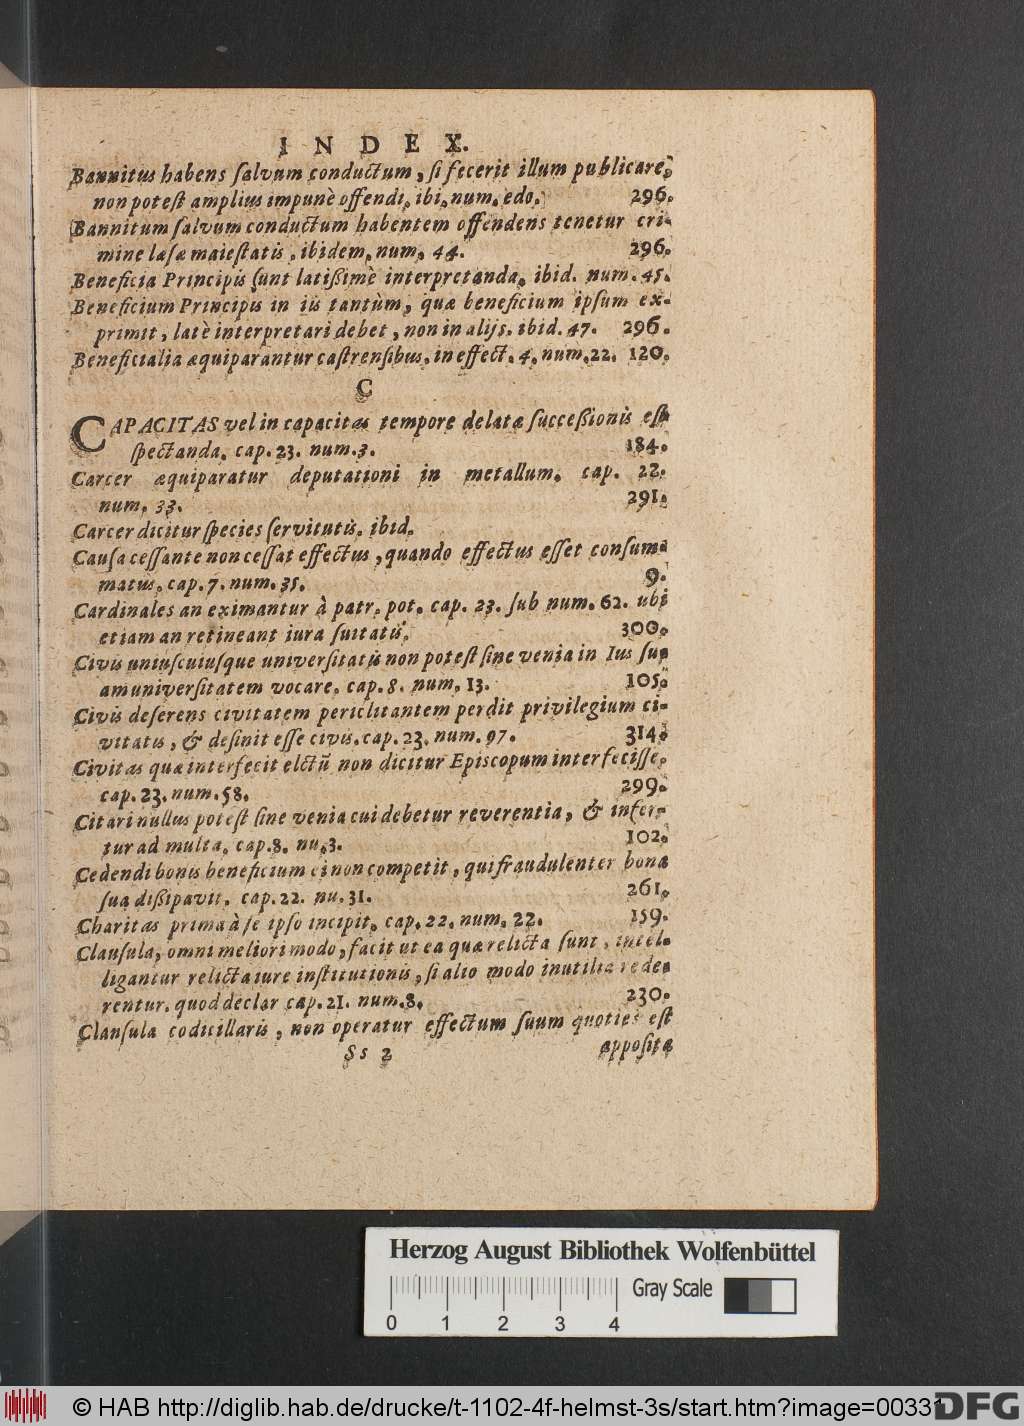 INDEX.
Bannitus habens ſalvum conductum, ſi fecerit illum publicare,
non poteſt amplius impunè offendi, ibi, num. edo. 296.
Bannitum ſalvum conductum habentem offendens tenetur cri-
mine læſæ maieſtatis, ibidem, num, 44. 296.
Beneficia Principis ſunt latißimè interpretanda, ibid. num. 45.
Beneficium Principis in iis tantùm, quæ beneficium ipſum ex-
primit, latè interpretari debet, non in alijs. ibid. 47. 296.
Beneficialia æquiparantur caſtrenſibus, in effect. 4. num. 22. 120.
C
CAPACITAS vel in capacitas tempore delatæ ſucceßionis eſt
ſpectanda, cap. 23. num. 3. 184.
Carcer æquiparatur deputationi in metallum, cap. 22.
num. 33. 291.
Carcer dicitur ſpecies ſervitutis, ibid.
Cauſa ceſſante non ceſſat effectus, quando effectus eſſet conſum-
matus, cap. 7. num. 35. 9.
Cardinales an eximantur à patr. pot. cap. 23. ſub num. 62. ubi
etiam an retineant iura ſuitatis. 300.
Civis uniuſcuiuſque univerſitatis non poteſt ſine venia in Ius ſu-
am univerſitatem vocare, cap. 8. num, 13. 105.
Civis deſerens civitatem periclitantem perdit privilegium ci-
vitatis, & deſinit eſſe civis. cap. 23. num. 97. 314.
Civitas quæ interfecit elctũ non dicitur Epiſcopum interfeciſſe,
cap. 23. num. 58. 299.
Citari nullus poteſt ſine venia cui debetur reverentia, & infer-
tur ad multa, cap. 8. nu. 3. 102.
Cedendi bonis beneficium ei non competit, qui fraudulenter bona
ſua dißipavit, cap. 22. nu. 31. 261.
Charitas prima à ſe ipſo incipit, cap. 22. num, 22. 159.
Clauſula, omni meliori modo, facit ut ea quæ relicta ſunt, intel-
ligantur relicta iure inſtitutionis, ſi alio modo inutilia rede-
rentur. quod declar cap. 21. num. 8. 230.
Clauſula codicillaris, non operatur effectum ſuum quoties eſt
Ss 2 appoſita
Herzog August Bibliothek Wolfenbüttel
Gray Scale
0 1 2 3 4
© HAB http://diglib.hab.de/drucke/t-1102-4f-helmst-3s/start.htm?image=00331
DFG